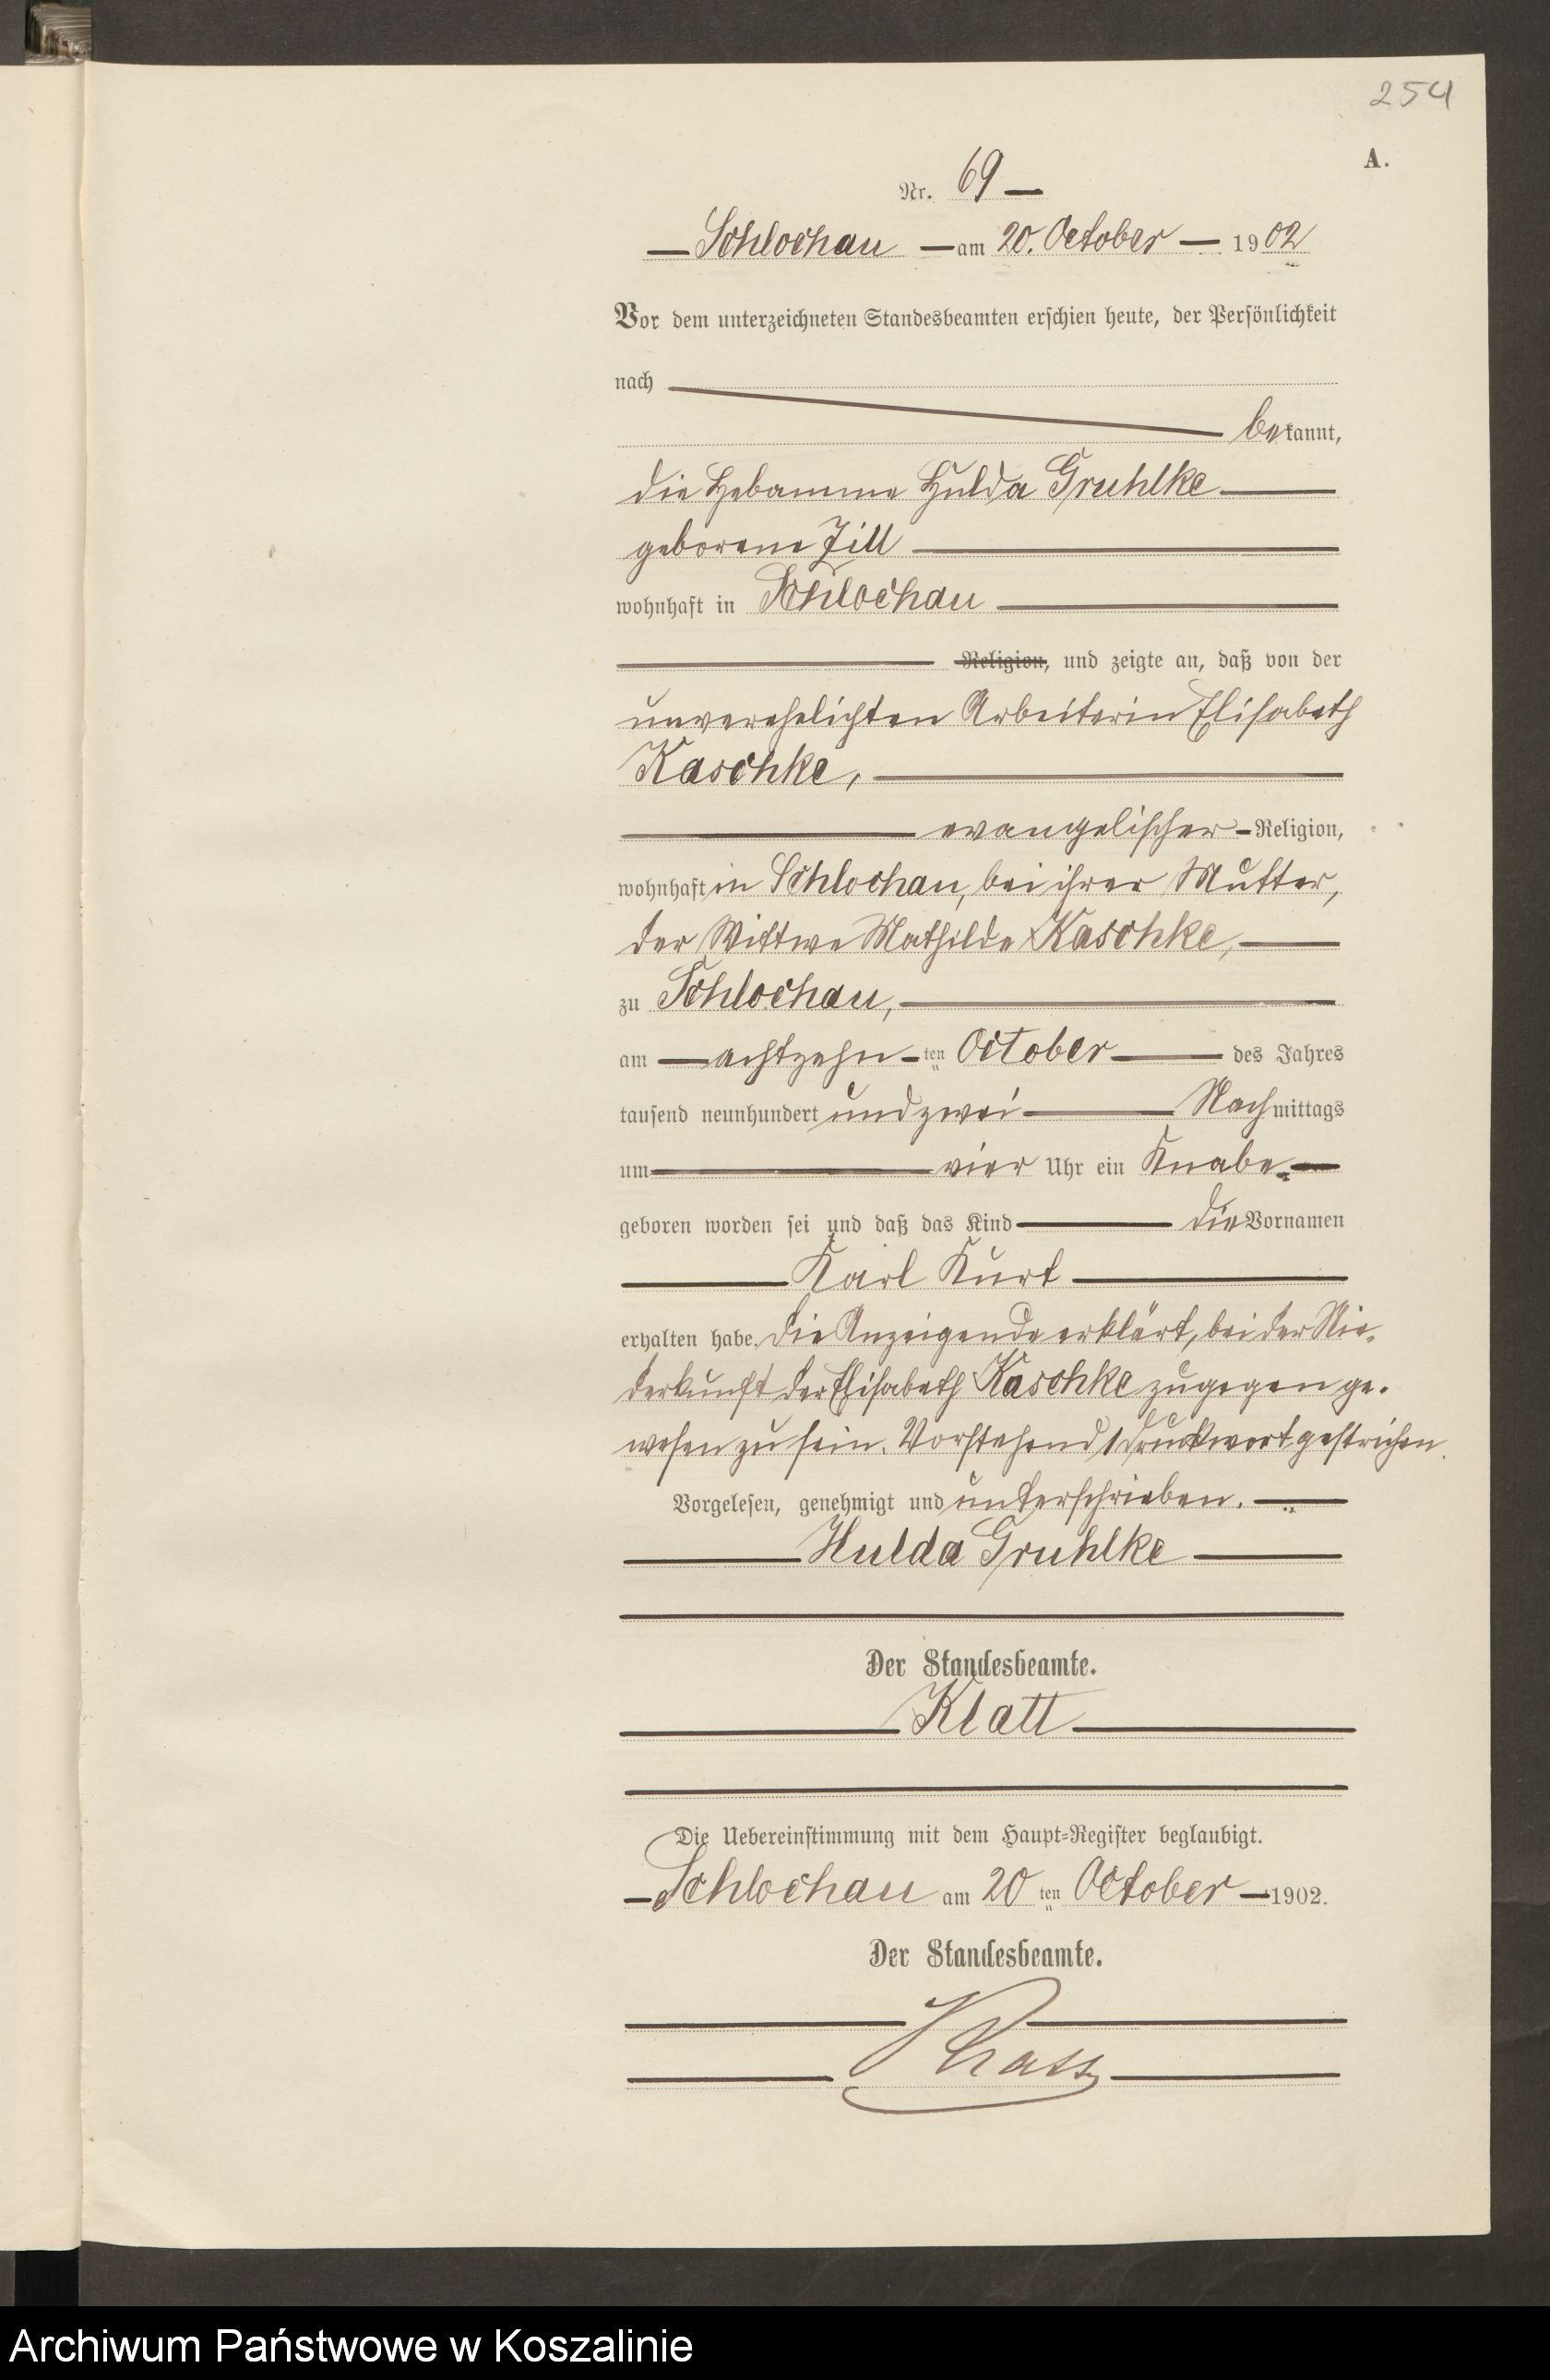 254
A.
Nr. 69
Schlochau am 20. October 1902
Vor dem unterzeichneten Standesbeamten erschien heute, der Persönlichkeit
nach
bekannt,
die Hebamme Hulda Gruhlke
geborene Zill
wohnhaft in Schlochau
Religion, und zeigte an, daß von der
unverehelichten Arbeiterin Elisabeth
Kaschke,
evangelischer Religion,
wohnhaft in Schlochau, bei ihrer Mutter,
der Wittwe Mathilde Kaschke,
zu Schlochau,
am achtzehn ten October des Jahres
tausend neunhundert und zwei Nachmittags
um vier Uhr ein Knabe
geboren worden sei und daß das Kind die Vornamen
Karl Kurt
erhalten habe. Die Anzeigende erklärt, bei der Nie-
derkunft der Elisabeth Kaschke zugegen ge-
wesen zu sein. Vorstehend 1 Druckwort gestrichen.
Vorgelesen, genehmigt und unterschrieben.
Hulda Gruhlke
Der Standesbeamte.
Klatt
Die Uebereinstimmung mit dem Haupt-Register beglaubigt.
Schlochau am 20 ten October 1902.
Der Standesbeamte.
Klatt
Archiwum Państwowe w Koszalinie